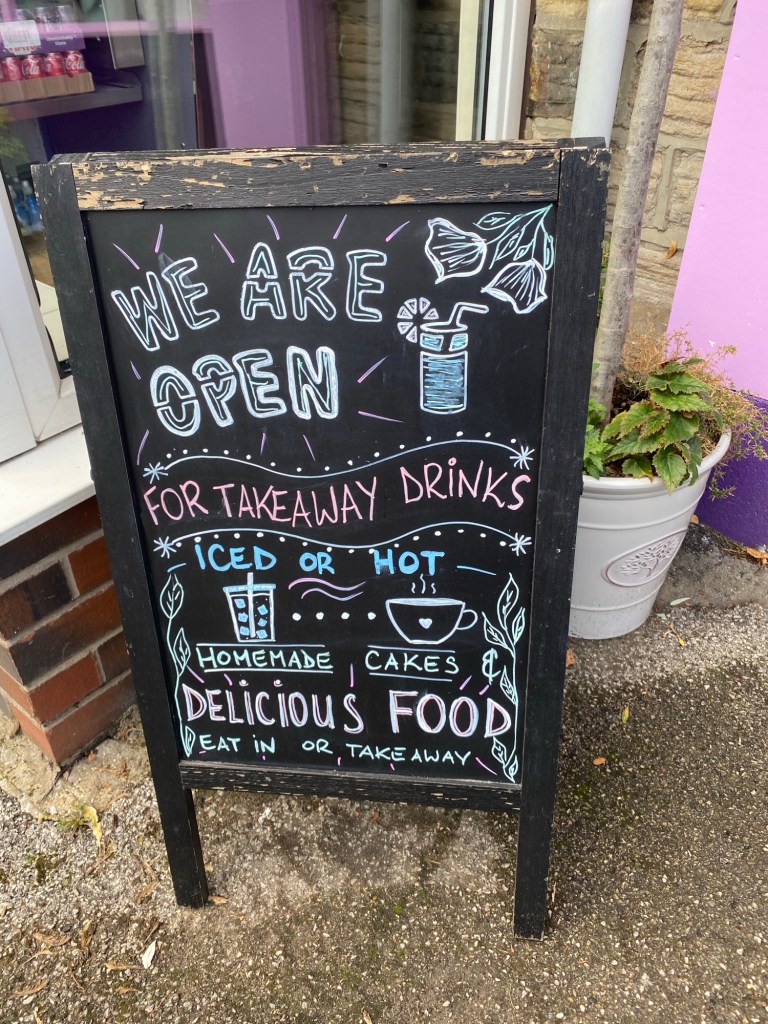 WE ARE
OPEN
FOR TAKEAWAY DRINKS
ICED OR HOT
HOMEMADE CAKES &
DELICIOUS FOOD
EAT IN OR TAKEAWAY